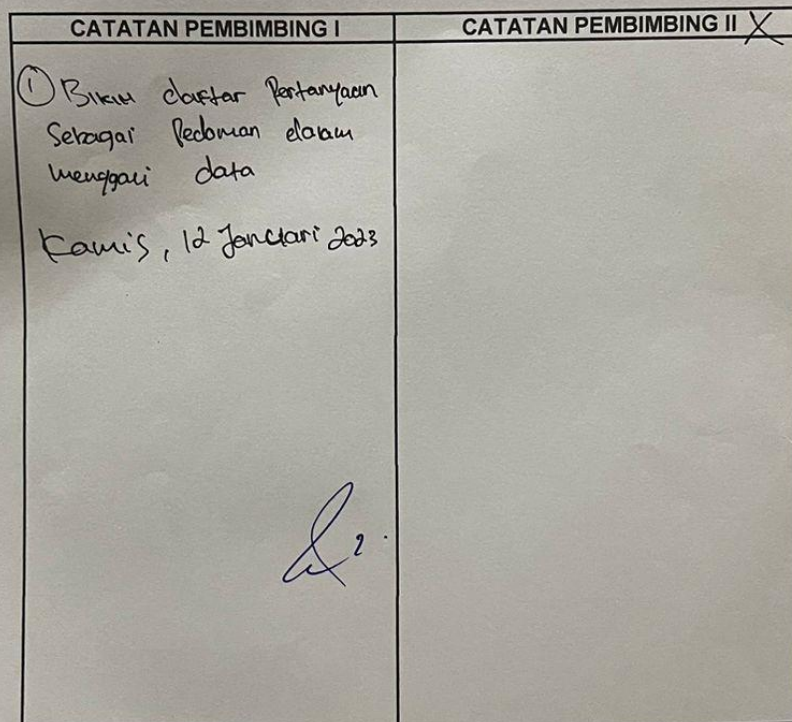 CATATAN PEMBIMBING I
CATATAN PEMBIMBING II X
① Bikin daftar Pertanyaan
Sebagai Pedoman dalam
menggali data
Kamis, 12 Januari 2023